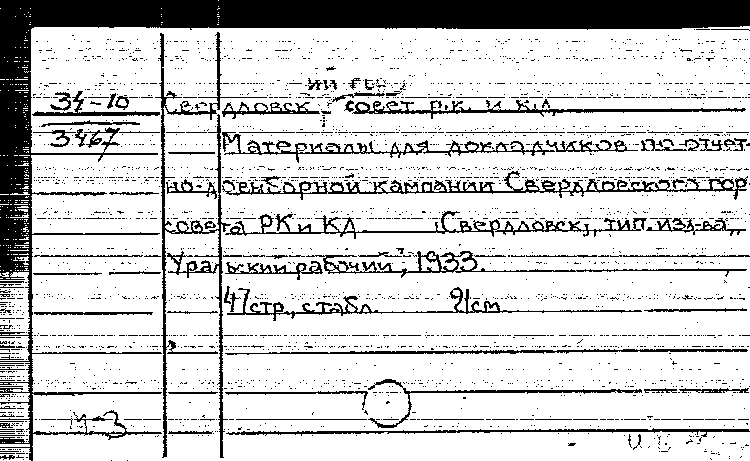 34-10
3467
Свердловск совет р.к. и к.д.
Материалы для докладчиков по отчет-
но-довыборной кампании Свердловского гор-
совета РК и КД. [Свердловск], тип. изд-ва „
Уральский рабочий", 1933.
47 стр., с табл. 21 см
М-3